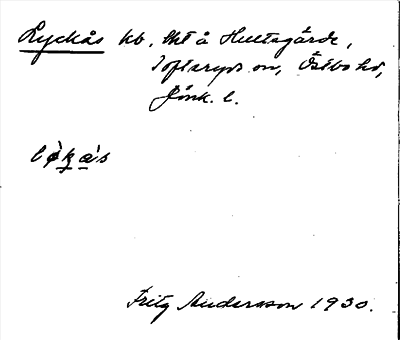 Lyckås kb. Hkt å Hultagärde,
Tofteryds sn, Östbo hd,
Jönk. l.
lø̀kas
Fritz Andersson 1930.